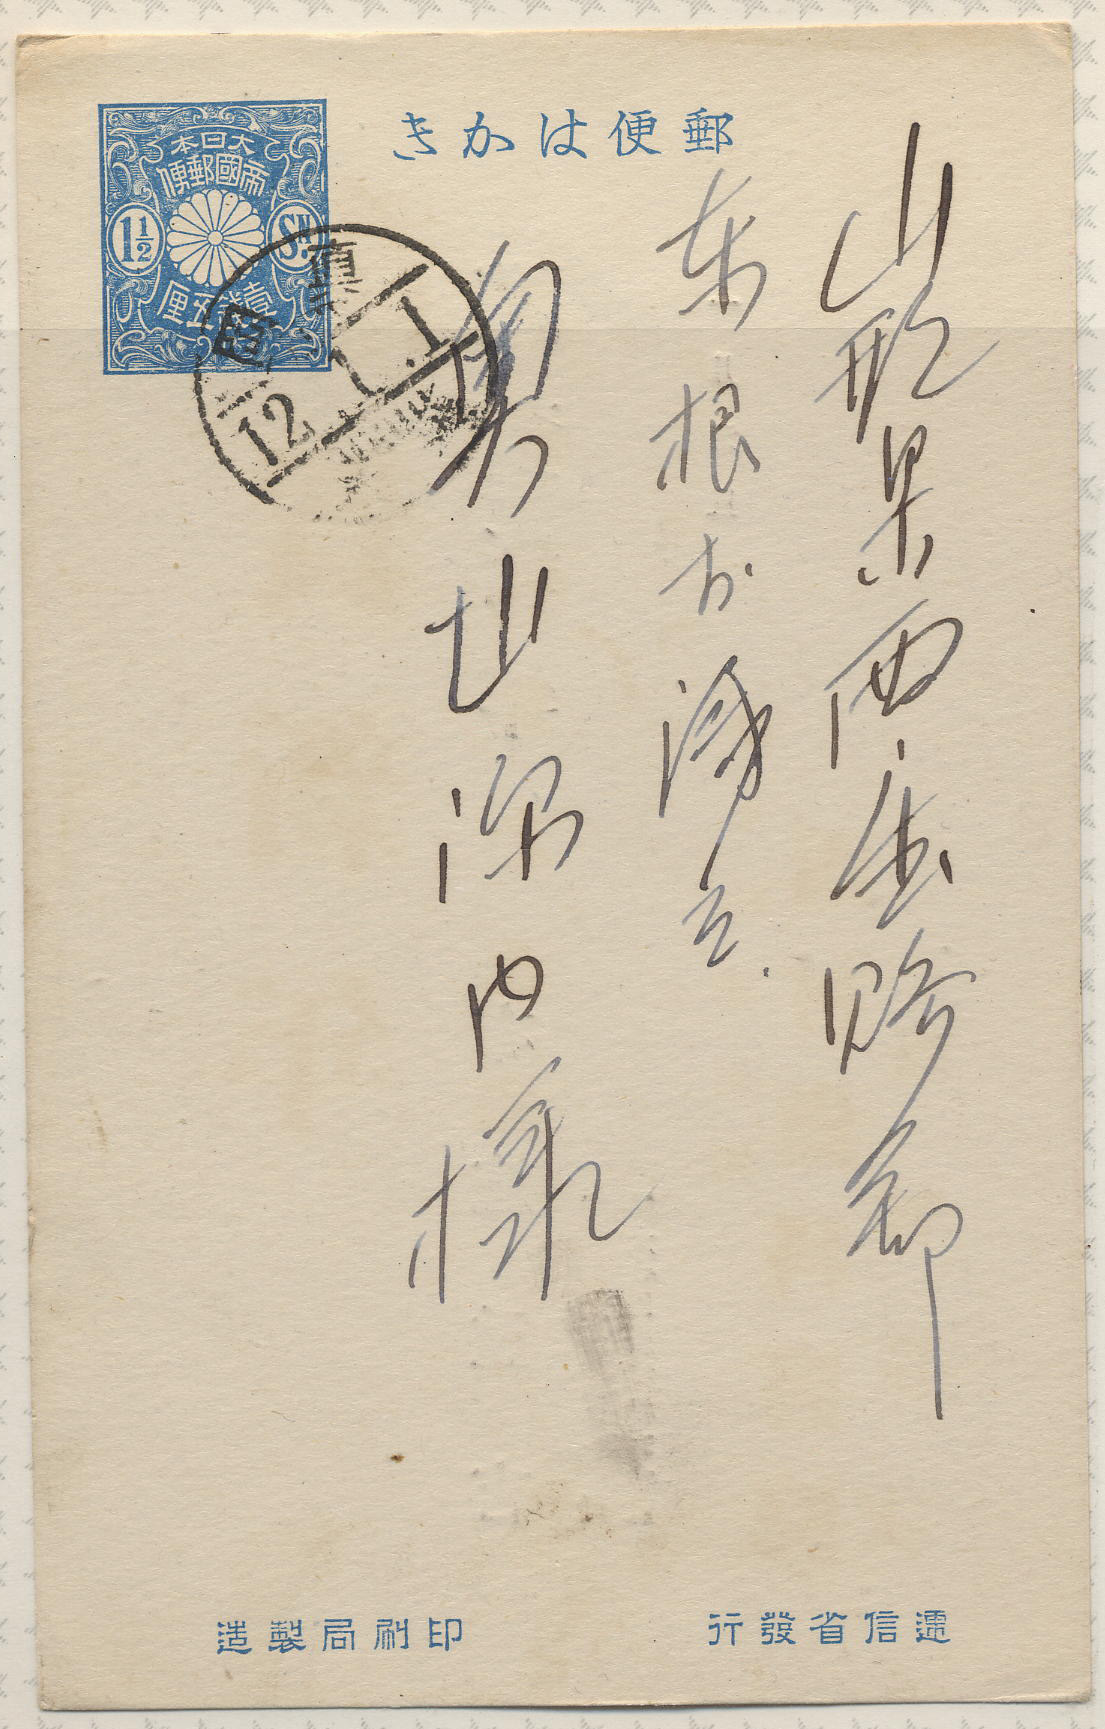 郵便はかき
大日本
帝國郵便
1½ Sn.
壹錢五厘
12.1.1
山形県西置賜郡
東根村浅立
奥山源内様
逓信省發行
印刷局製造